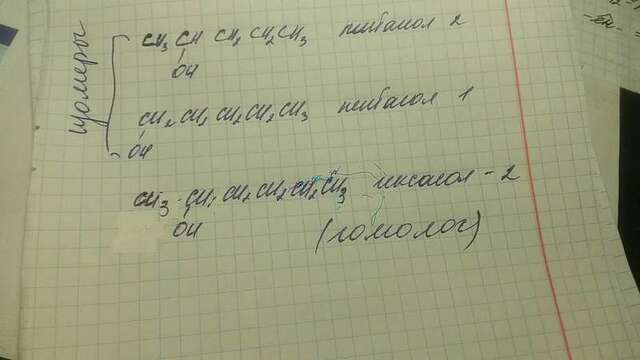 изомеры
CH3 CH CH2 CH2CH3 пентанол 2
OH
CH2 CH2 CH2 CH2 CH3 пентанол 1
OH
CH3 - CH - CH2 CH2 CH2 CH3 гексанол - 2
OH
(гомолог)